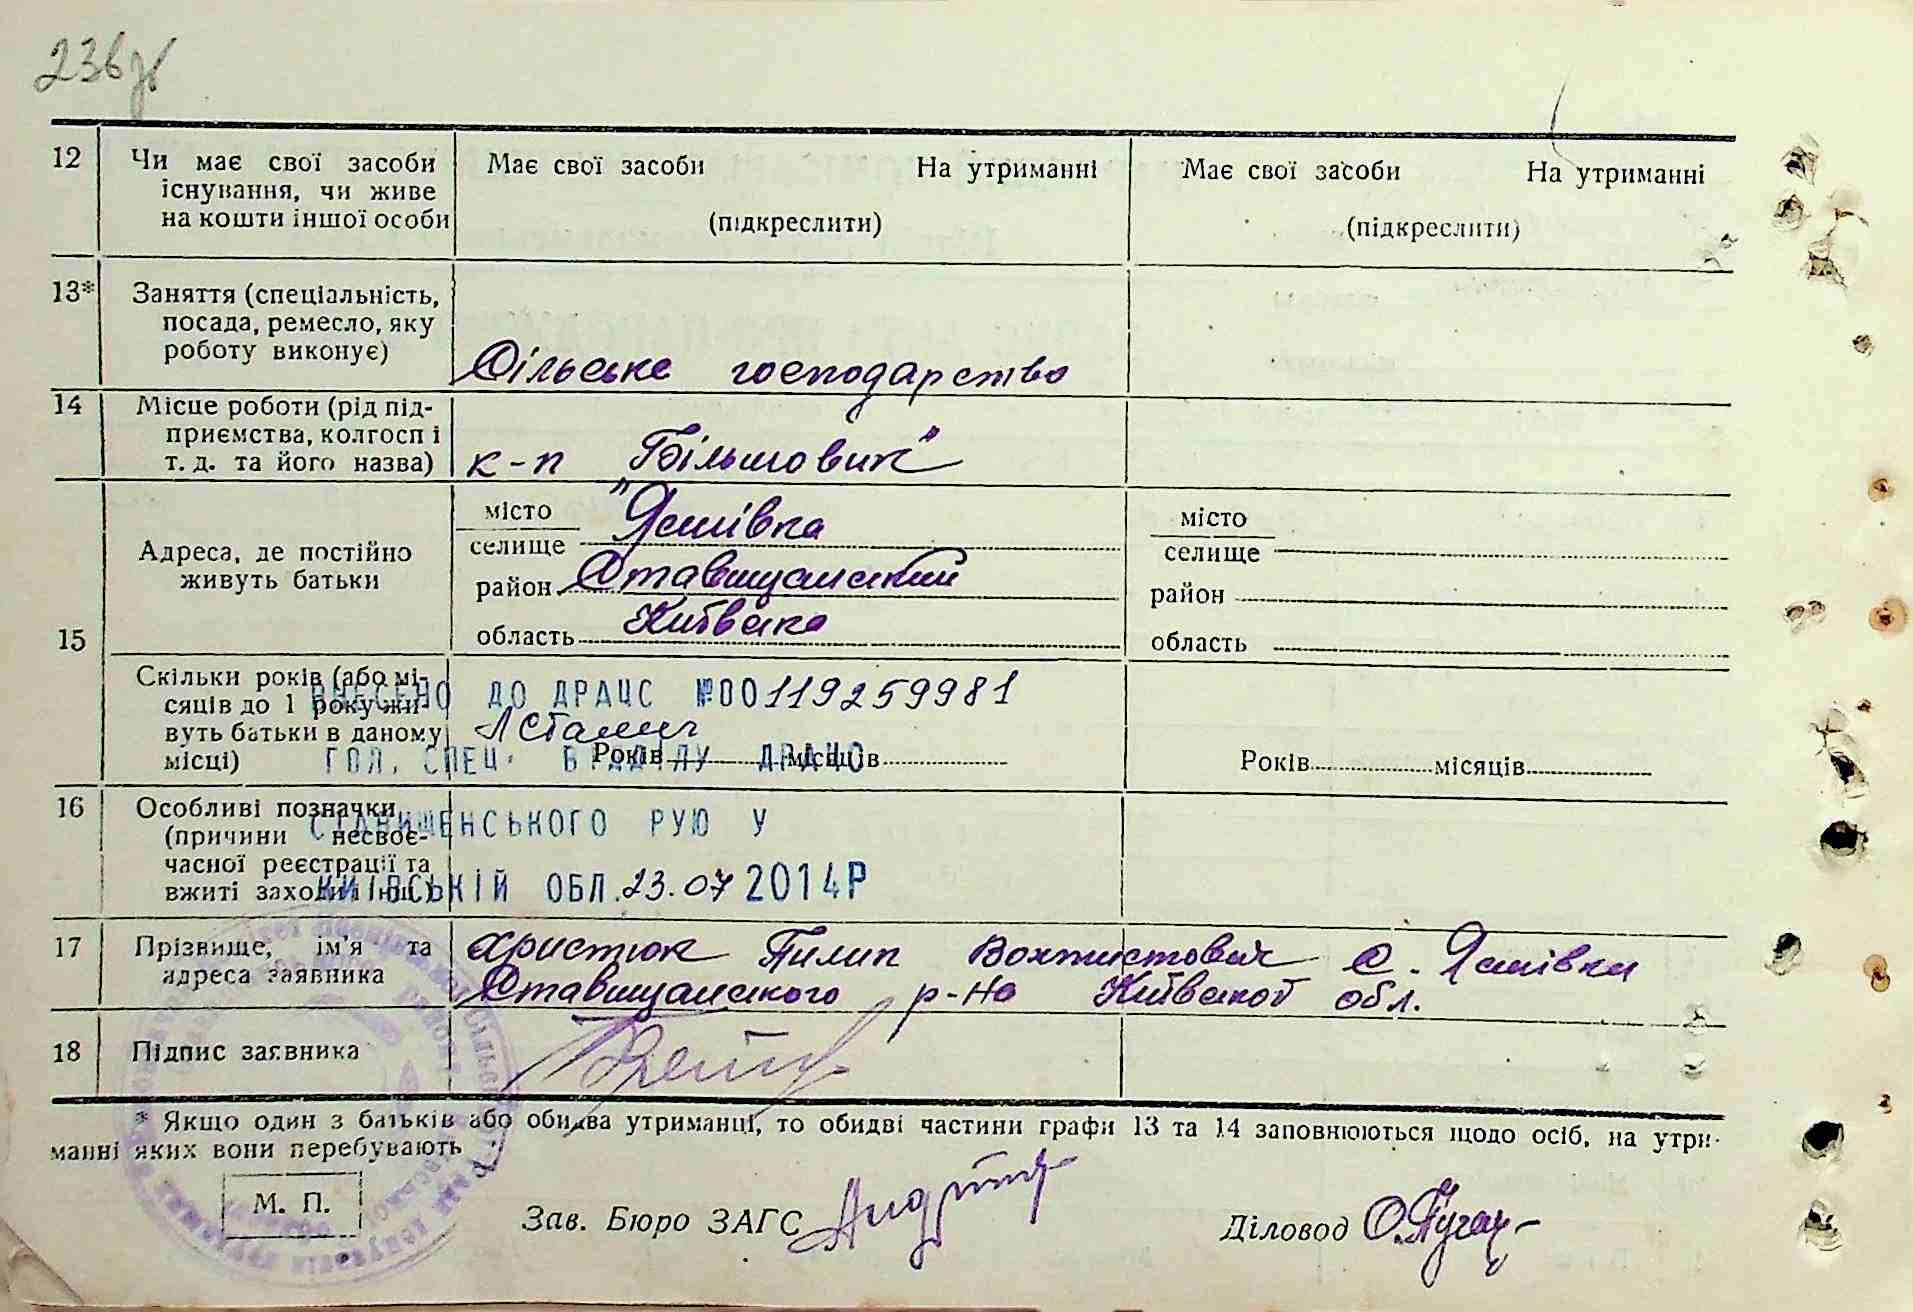 236
12 Чи має свої засоби існування, чи живе на кошти іншої особи
Має свої засоби На утриманні
(підкреслити)
Має свої засоби На утриманні
(підкреслити)
13* Заняття (спеціальність, посада, ремесло, яку роботу виконує)
Сільське господарство
14 Місце роботи (рід підприємства, колгосп і т. д. та його назва)
к-п "Більшовик"
15 Адреса, де постійно живуть батьки
місто
селище Яснівка
район Ставищанский
область Київська
місто
селище
район
область
Скільки років (або місяців до 1 року живуть батьки в даному місці)
Років місяців
Років місяців
ВНЕСЕНО ДО ДРАЦС №00119259981
ГОЛ. СПЕЦ. ВІДДІЛУ ДРАЦС
СТАВИЩЕНСЬКОГО РУЮ У
КИЇВСЬКІЙ ОБЛ. 23.07 2014Р
16 Особливі позначки (причини несвоєчасної реєстрації та вжиті заходи і інш.)
17 Прізвище, ім'я та адреса заявника
Христюк Пилип с. Яснівка
Ставищанского р-на Київской обл.
18 Підпис заявника
* Якщо один з батьків або обидва утриманці, то обидві частини графи 13 та 14 заповнюються щодо осіб, на утри-
манні яких вони перебувають
М. П.
Зав. Бюро ЗАГС
Діловод О.Пугач